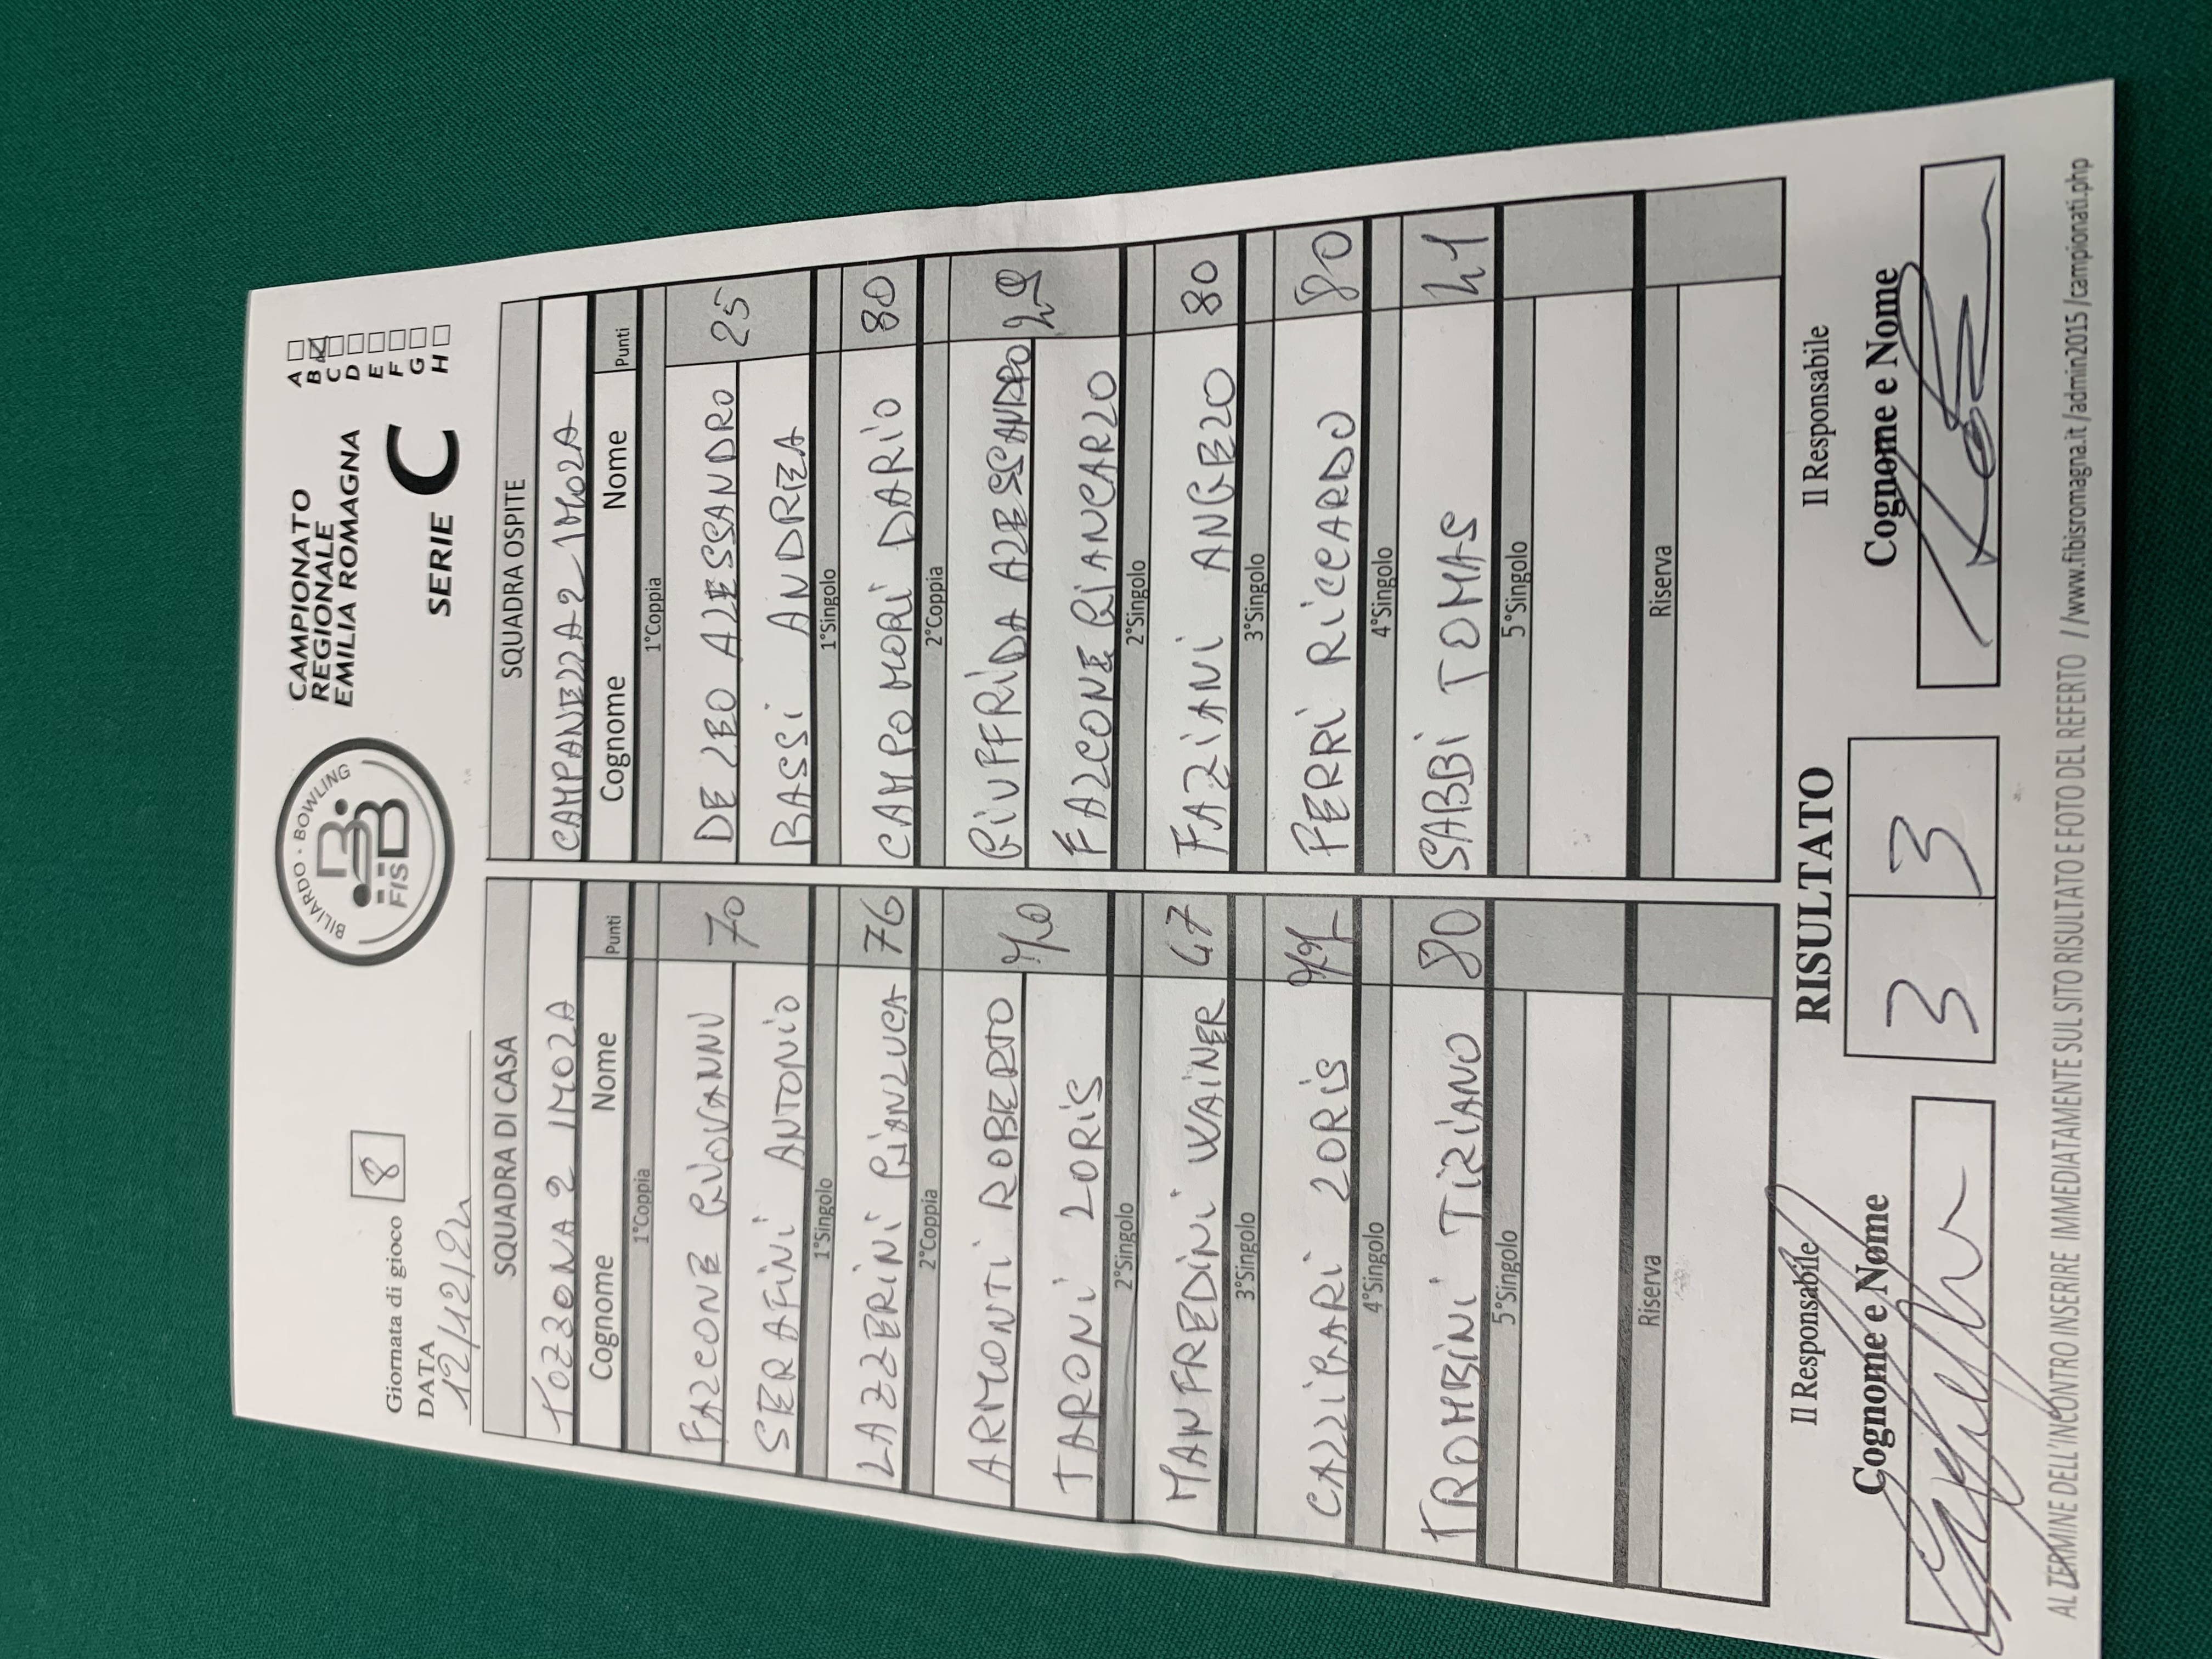 Giornata di gioco 8
DATA
12/12/24
BILIARDO - BOWLING
FISBB
CAMPIONATO
REGIONALE
EMILIA ROMAGNA
SERIE C
A
B
C
D
E
F
G
H
SQUADRA DI CASA
TOZZONA 2 IMOLA
Cognome Nome Punti
1°Coppia
FALCONE GIOVANNI 70
SERAFINI ANTONIO
1°Singolo
LAZZERINI GIANLUCA 76
2°Coppia
ARMONTI ROBERTO 70
TARONI LORIS
2°Singolo
MANFREDINI WAINER 47
3°Singolo
CALLIGARI LORIS
4°Singolo
TROMBINI TIZIANO 80
5°Singolo
Riserva
SQUADRA OSPITE
CAMPANELLA 2 IMOLA
Cognome Nome Punti
1°Coppia
DE LEO ALESSANDRO 25
BASSI ANDREA
1°Singolo
CAMPOMORI DARIO 80
2°Coppia
GIUFFRIDA ALESSANDRO 29
FALCONE GIANCARLO
2°Singolo
FAZIANI ANGELO 80
3°Singolo
FERRI RICCARDO 80
4°Singolo
SABBI TOMAS 41
5°Singolo
Riserva
Il Responsabile
Cognome e Nome
RISULTATO
3 3
Il Responsabile
Cognome e Nome
AL TERMINE DELL'INCONTRO INSERIRE IMMEDIATAMENTE SUL SITO RISULTATO E FOTO DEL REFERTO //www.fibisromagna.it/admin2015/campionati.php